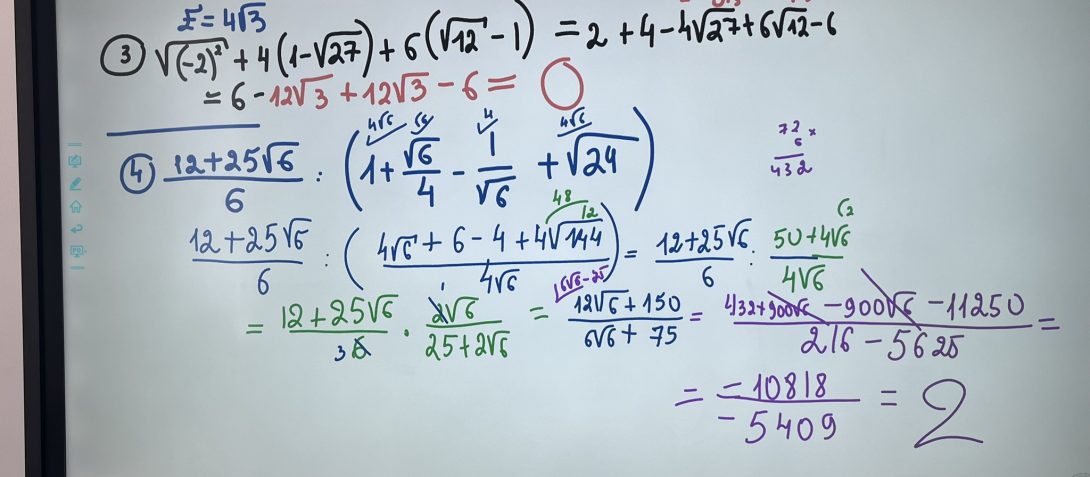 E = 4√3
③ √(-2)² + 4(1-√27) + 6(√12 - 1) = 2 + 4 - 4√27 + 6√12 - 6
= 6 - 12√3 + 12√3 - 6 = 0
4√6 √6 4 4√6
④ (12+25√6)/6 : (1 + √6/4 - 1/√6 + √24)
72 ×
6
432
48
12
(12+25√6)/6 : ((4√6 + 6 - 4 + 4√144)/(4√6)) = (12+25√6)/6 : (50+4√6)/(4√6) (2
6√6-75
= (12+25√6)/(3 6) · (1 2√6)/(25+2√6) = (12√6+150)/(6√6+75) = (432+900√6 - 900√6 - 11250)/(216 - 5625) =
= (-10818)/(-5409) = 2